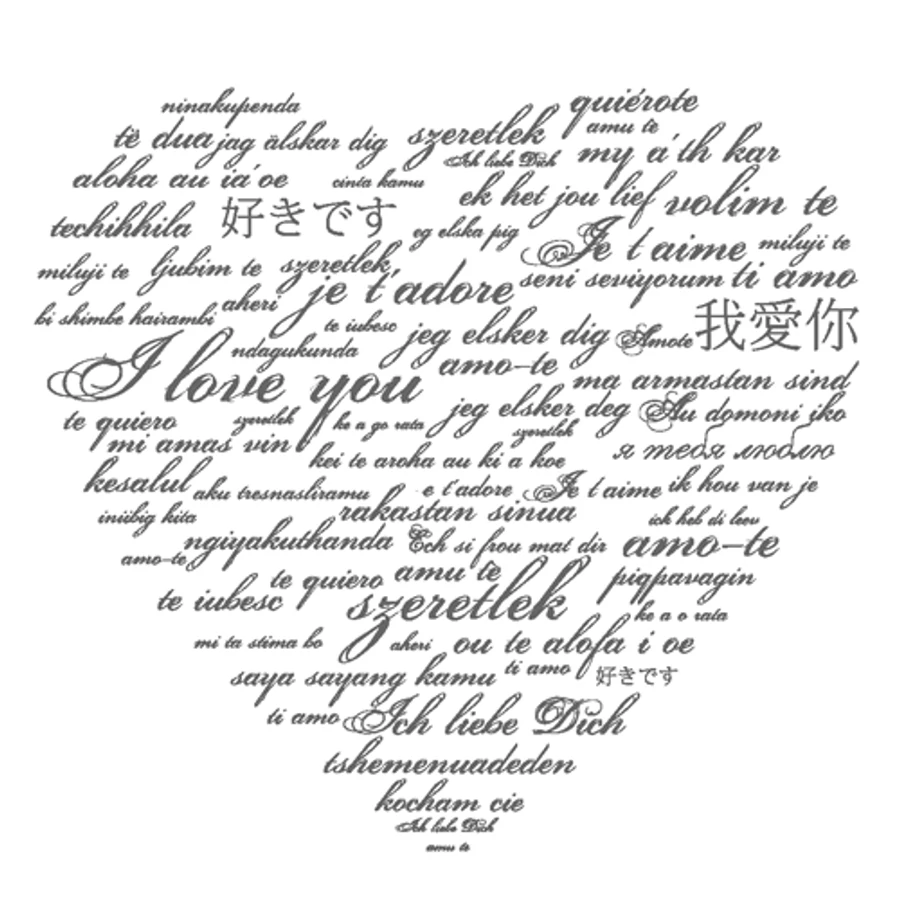 ninakupenda quiérote
të dua jag älskar dig szeretlek amu të
Ich liebe Dich my a'th kar
aloha au ia'oe cinta kamu ek het jou lief volim te
techihhila 好きです eg elska pig Je t'aime miluji te
miluji te ljubim te szeretlek je t'adore seni seviyorum ti amo
bi shimbe hairambi aheri te iubesc jeg elsker dig Amote 我愛你
I love you ndagukunda amo-te ma armastan sind
te quiero szeretlek ke a go rata jeg elsker deg Au domoni iko
mi amas vin szeretlek я тебя люблю
kei te aroha au ki a koe
kesalul aku tresnasliramu e t'adore Je t'aime ik hou van je
iniibig kita rakastan sinua ich heb di leev
amo-te ngiyakuthanda Ech si frou mat dir amo-te
te quiero amu të piqpavagin
te iubesc szeretlek ke a o rata
mi ta stima bo aheri ou te alofa i oe
saya sayang kamu ti amo 好きです
ti amo Ich liebe Dich
tshemenuadeden
kocham cie
Ich liebe Dich
amu te